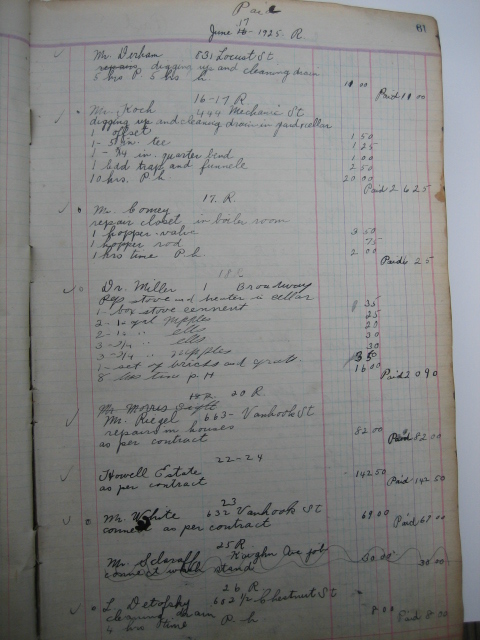 Paid
61
17
June 16 - 1925. R
Mr. Derham 831 Locust St
repairs, digging up and cleaning drain
5 hrs P 5 hrs h 11 00
Paid 11 00
16-17 R
Mr. Koch 444 Mechanic St
digging up and cleaning drain in yard + cellar
offset 1 50
1 - 5 in. tee 1 25
1 - 1/4 in. quarter bend 1 00
1 bad trap and funnele 2 50
10 hrs. P h 20 00
Paid 26 25
17. R.
Mr. Comey
repair closet in boiler room
1 hopper valve 3 50
1 hopper rod 75
1 hrs time P h 2 00
Paid 6 25
Dr. Miller 1 Broadway
stove and heater in cellar
1 - box stove cement 35
2 - 1 - nipples 25
2 - 1 in " ells 20
3 - 3/4 " ells 30
3 - 3/4 " nipples 30
1 - set of bricks and grate 3 50
8 hrs time P H 16 00
Paid 20 90
20 R.
Mr. Morris
Mr. Riegel 663 - Vanhook St
repairs in houses
as per contract 82.00
Paid 82 00
22-24
Howell Estate
as per contract 142 50
Paid 142 50
23
Mr. White 632 Vanhook St
connect as per contract 69.00
Paid 69 00
25 R
Mr. Vaughn Ave job
connect wash stand 30.00 30 00
26 R.
L Detofsky 612 1/2 Chestnut St
cleaning drain
4 hrs time P. h 8 00 Paid 8 00